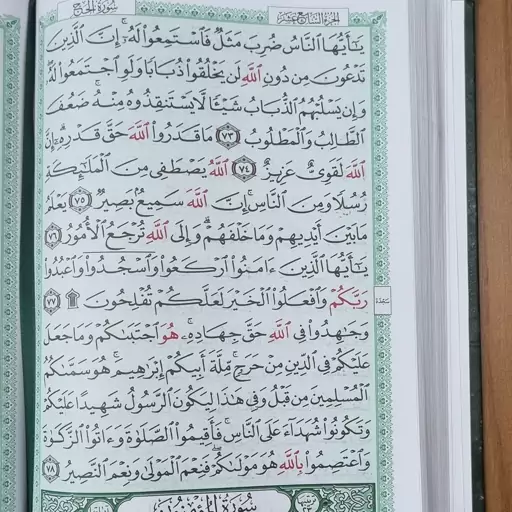 سُورَةُ الحَجِّ الجُزْءُ السَّابِعَ عَشَرَ
يَٰٓأَيُّهَا ٱلنَّاسُ ضُرِبَ مَثَلٌ فَٱسْتَمِعُواْ لَهُۥٓۚ إِنَّ ٱلَّذِينَ
تَدْعُونَ مِن دُونِ ٱللَّهِ لَن يَخْلُقُواْ ذُبَابًا وَلَوِ ٱجْتَمَعُواْ لَهُۥۖ
وَإِن يَسْلُبْهُمُ ٱلذُّبَابُ شَيْـًٔا لَّا يَسْتَنقِذُوهُ مِنْهُۚ ضَعُفَ
ٱلطَّالِبُ وَٱلْمَطْلُوبُ ٧٣ مَا قَدَرُواْ ٱللَّهَ حَقَّ قَدْرِهِۦٓۚ إِنَّ
ٱللَّهَ لَقَوِىٌّ عَزِيزٌ ٧٤ ٱللَّهُ يَصْطَفِى مِنَ ٱلْمَلَٰٓئِكَةِ
رُسُلًا وَمِنَ ٱلنَّاسِۚ إِنَّ ٱللَّهَ سَمِيعٌۢ بَصِيرٌ ٧٥ يَعْلَمُ
مَا بَيْنَ أَيْدِيهِمْ وَمَا خَلْفَهُمْۗ وَإِلَى ٱللَّهِ تُرْجَعُ ٱلْأُمُورُ ٧٦
يَٰٓأَيُّهَا ٱلَّذِينَ ءَامَنُواْ ٱرْكَعُواْ وَٱسْجُدُواْ وَٱعْبُدُواْ
رَبَّكُمْ وَٱفْعَلُواْ ٱلْخَيْرَ لَعَلَّكُمْ تُفْلِحُونَ ۩ ٧٧
سجدة
وَجَٰهِدُواْ فِى ٱللَّهِ حَقَّ جِهَادِهِۦۚ هُوَ ٱجْتَبَىٰكُمْ وَمَا جَعَلَ
عَلَيْكُمْ فِى ٱلدِّينِ مِنْ حَرَجٍۚ مِّلَّةَ أَبِيكُمْ إِبْرَٰهِيمَۚ هُوَ سَمَّىٰكُمُ
ٱلْمُسْلِمِينَ مِن قَبْلُ وَفِى هَٰذَا لِيَكُونَ ٱلرَّسُولُ شَهِيدًا عَلَيْكُمْ
وَتَكُونُواْ شُهَدَآءَ عَلَى ٱلنَّاسِۚ فَأَقِيمُواْ ٱلصَّلَوٰةَ وَءَاتُواْ ٱلزَّكَوٰةَ
وَٱعْتَصِمُواْ بِٱللَّهِ هُوَ مَوْلَىٰكُمْۖ فَنِعْمَ ٱلْمَوْلَىٰ وَنِعْمَ ٱلنَّصِيرُ ٧٨
سُورَةُ المُؤْمِنُونَ